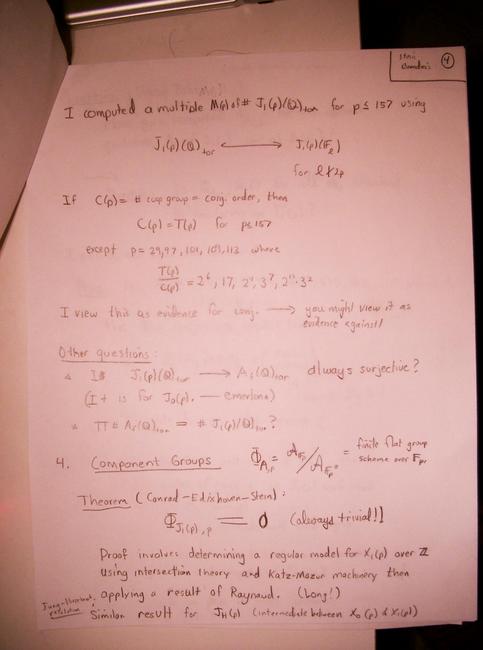 4
I computed a multiple M(p) of # J₁(p)(ℚ)tor for p ≤ 157 using
J₁(p)(ℚ)tor ⟷ J₁(p)(𝔽ℓ)
for ℓ∤2p
If C(p) = # cusp group = conj. order, then
C(p) = T(p) for p≤157
except p = 29, 97, 101, 109, 113 where
T(p)/C(p) = 2⁶, 17, 2⁴, 3⁷, 2¹¹·3²
I view this as evidence for conj. ⟶ you might view it as
evidence against!
Other questions:
Is J₁(p)(ℚ)tor ⟶ A₁(ℚ)tor always surjective?
(It is for J₀(p). — emerton)
∏ # (ℚ)tor = # J₁(p)(ℚ)tor?
4. Component Groups Φ_A,p = 𝒜_𝔽p / 𝒜_𝔽p⁰ = finite flat group
scheme over 𝔽p,
Theorem (Conrad-Edixhoven-Stein):
Φ_J₁(p),p = 0 (always trivial!)
Proof involves determining a regular model for X₁(p) over ℤ
using intersection theory and Katz-Mazur machinery then
applying a result of Raynaud. (Long!)
Similar result for J_H(p) (intermediate between X₀(p) & X₁(p))